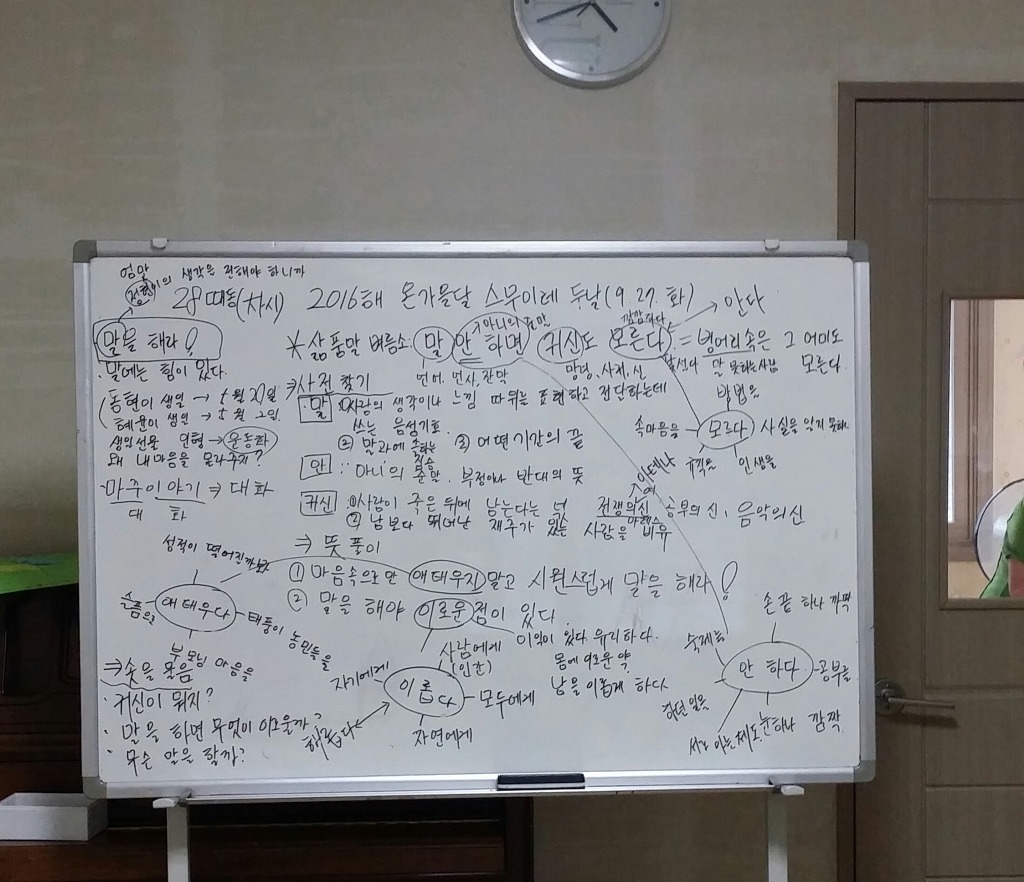 엄말
정현이의 생각은 권해야 하니까
28때(차시) 2016해 온가을달 스무이레 두날(9.27.화)
안다
말을 해라!
아니의 준말
깜깜하다
* 삶품말 벼름소: 말 안 하면 귀신도 모른다 = 벙어리 속은 그 어미도 모른다.
말 못하는 사람
언어, 언사,
망령, 사제, 신
· 말에는 힘이 있다.
동현이 생일 →
혜윤이 생일 →
생일선물 인형 → 운동화
왜 내 마음을 몰라주지?
· 마주이야기 ⇒ 대화
대 화
⇒ 사전 찾기
말 ① 사람의 생각이나 느낌 따위를 표현하고 전달하는데
쓰는 음성기호.
② 말과에 속하는 짐승
③ 어떤 기간의 끝
안 : '아니'의 준말, 부정이나 반대의 뜻
귀신 ① 사람이 죽은 뒤에 남는다는 넋
② 남보다 뛰어난 재주가 있는 사람을 비유
아테나
전쟁의 신
아레스
승부의 신, 음악의 신
방법을
속마음을
모르다
사실을 알지 못하다
규칙을
인생을
⇒ 뜻풀이
① 마음속으로만 애태우지 말고 시원스럽게 말을 해라!
② 말을 해야 이로운 점이 있다.
이익이 있다. 유리하다.
몸에 이로운 약
남을 이롭게 하다
성적이 떨어진까봐
슬픔으로
애태우다
태풍이 농민들을
부모님 마음을
사람에게
(인간)
자기에게
이롭다
모두에게
자연에게
해롭다
⇒ 솟은 물음
· 귀신이 뭐지?
· 말을 하면 무엇이 이로울까?
· 무슨 말을 할까?
손끝 하나 까딱
숙제를
안 하다
공부를
하던 일을
눈 하나 깜짝